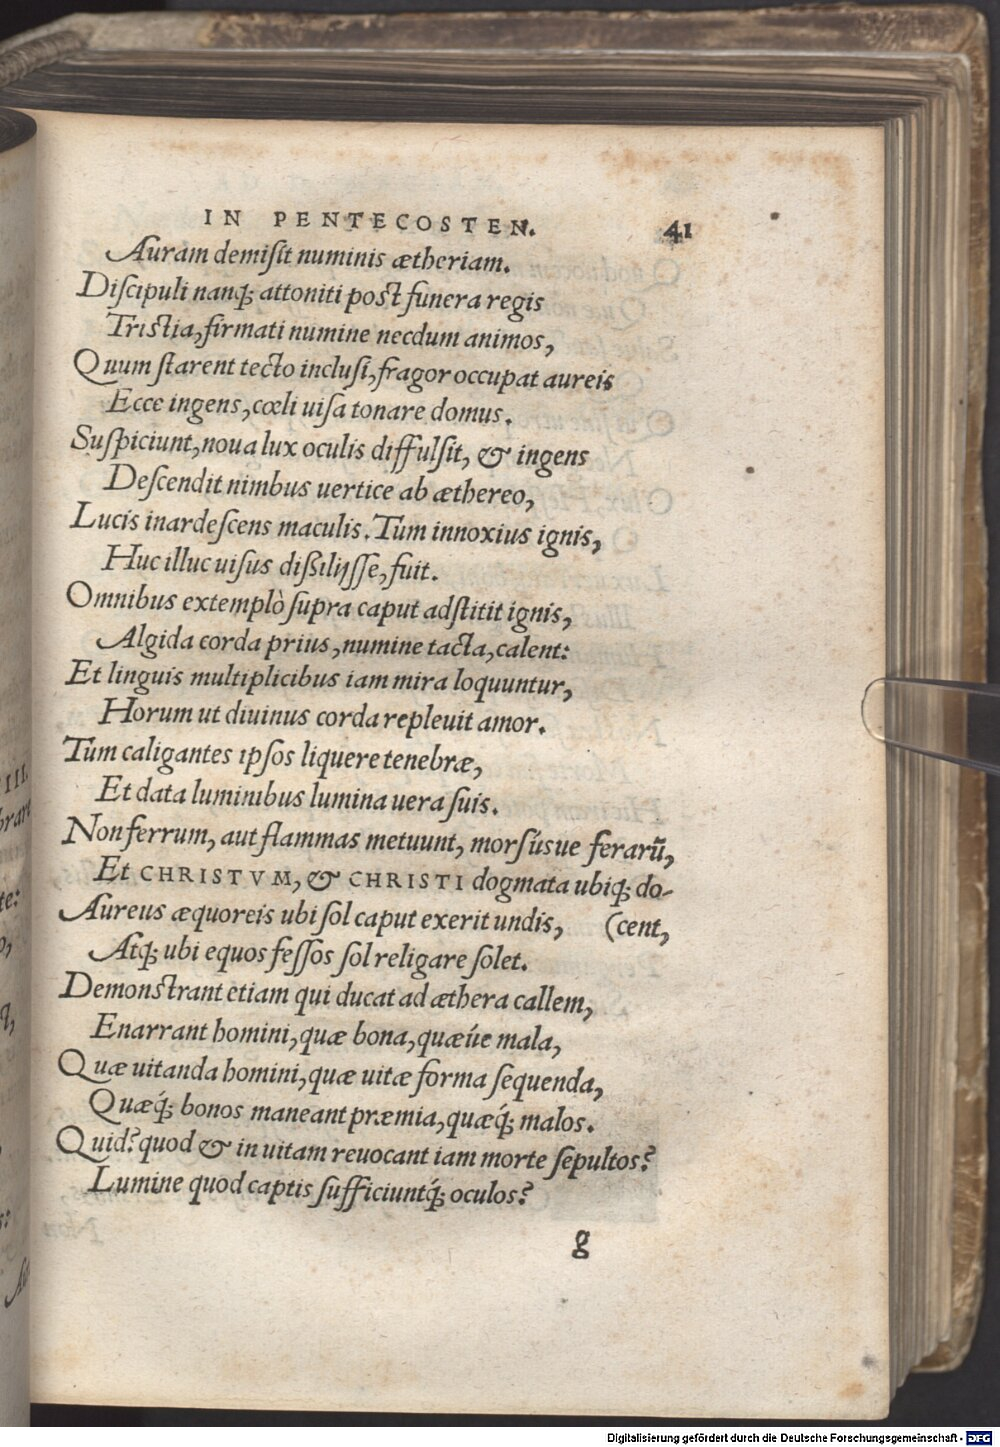 IN PENTECOSTEN. 41
Auram demiſit numinis ætheriam.
Diſcipuli nanq; attoniti poſt funera regis
Triſtia, firmati numine necdum animos,
Quum ſtarent tecto incluſi, fragor occupat aureis
Ecce ingens, cœli uiſa tonare domus.
Suſpiciunt, noua lux oculis diffulſit, & ingens
Deſcendit nimbus uertice ab æthereo,
Lucis inardeſcens maculis. Tum innoxius ignis,
Huc illuc uiſus diſsilijſſe, fuit.
Omnibus extemplò ſupra caput adſtitit ignis,
Algida corda prius, numine tacta, calent:
Et linguis multiplicibus iam mira loquuntur,
Horum ut diuinus corda repleuit amor.
Tum caligantes ipſos liquere tenebræ,
Et data luminibus lumina uera ſuis.
Non ferrum, aut flammas metuunt, morſúsue ferarũ,
Et CHRISTVM, & CHRISTI dogmata ubiq; do-
Aureus æquoreis ubi ſol caput exerit undis, (cent,
Atq; ubi equos feſſos ſol religare ſolet.
Demonſtrant etiam qui ducat ad æthera callem,
Enarrant homini, quæ bona, quæúe mala,
Quæ uitanda homini, quæ uitæ forma ſequenda,
Quæq́; bonos maneant præmia, quæq́; malos.
Quid? quod & in uitam reuocant iam morte ſepultos?
Lumine quod captis ſufficiuntq́; oculos?
g
Digitalisierung gefördert durch die Deutsche Forschungsgemeinschaft - DFG